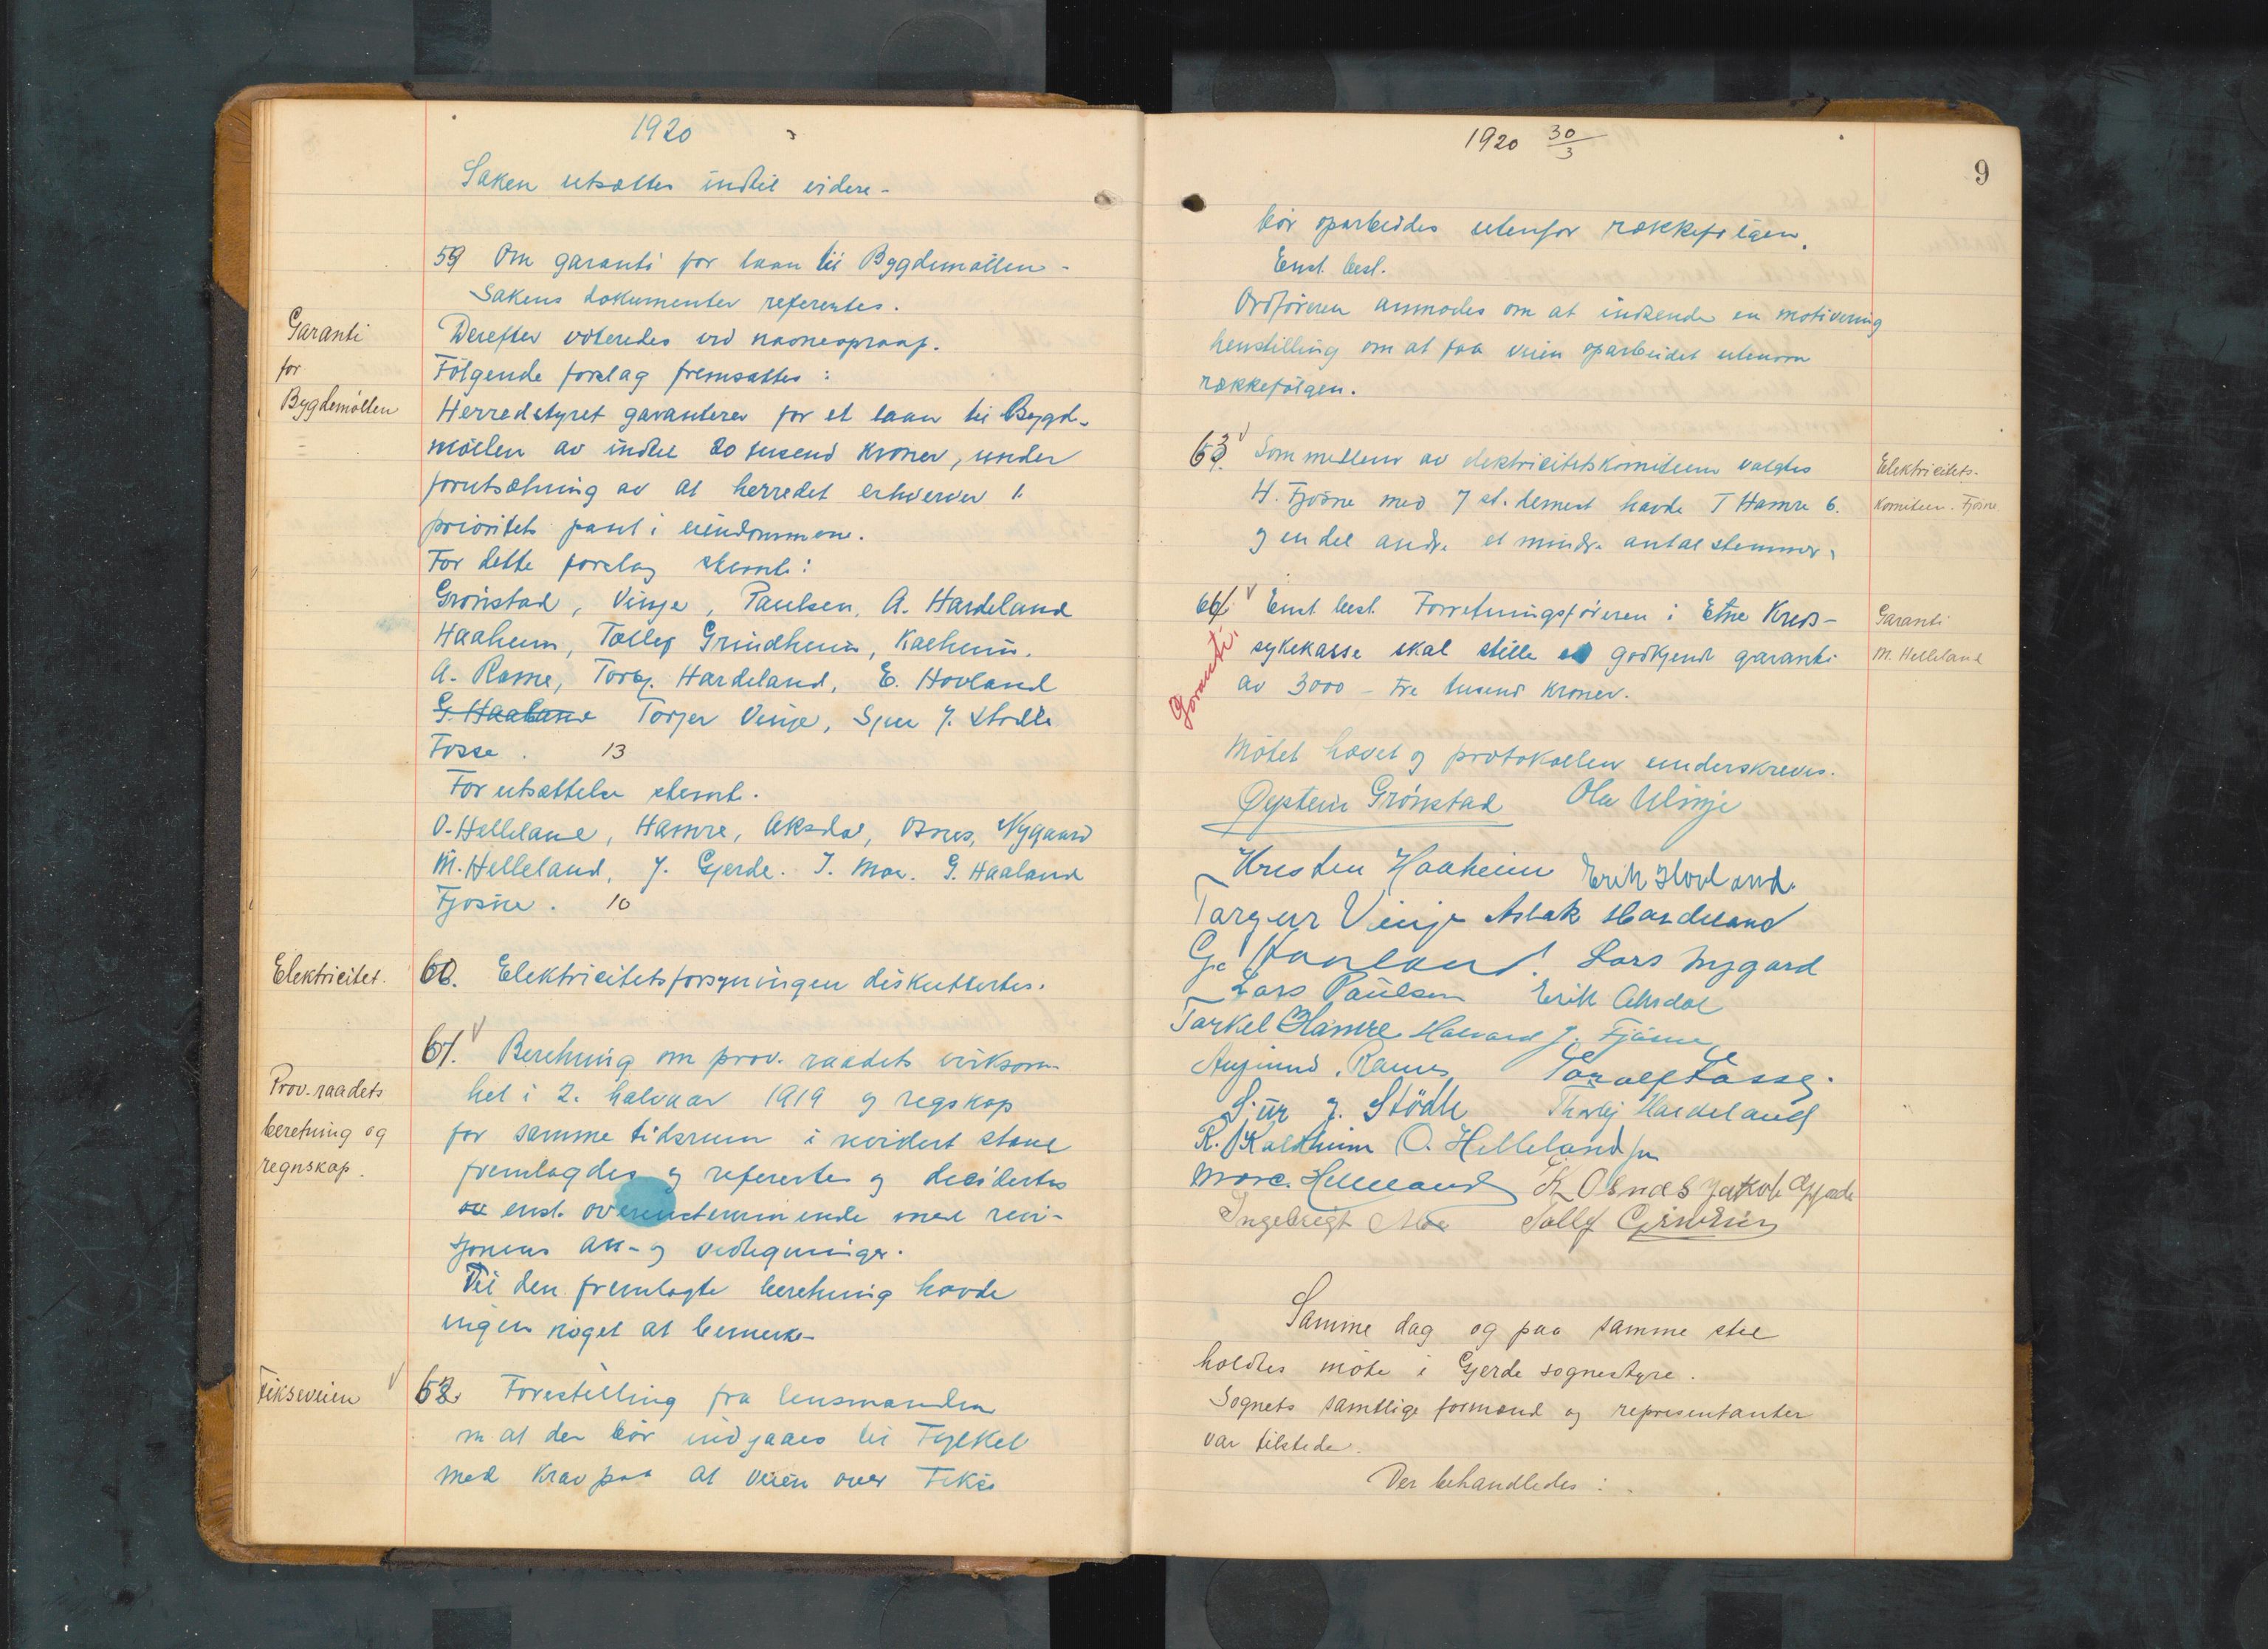 1920
Saken utsættes indtil videre -
59 Om garanti for laan til Bygdemøllen -
Sakens dokumenter referertes.
Garanti
for
Bygdemøllen
Derefter voteredes ved navneopraap.
Følgende forslag fremsattes:
Herredstyret garanterer for et laan til Bygd-
møllen av indtil 20 tusend kroner, under
forutsætning av at herredet erhverver 1.
prioritets pant i eiendommene.
For dette forslag stemte:
Grønstad, Vinje, Paulsen, A. Hardeland
Haaheim, Tollef Grindheim, Kalheim.
A. Rame, Torbj. Hardeland, E. Hovland
G. Haaland Torjer Vinje, Sjur J. Stødle
Fosse. 13
For utsættelse stemte.
O. Helleland, Hamre, Aksdal, Osnes, Nygaard
M. Helleland, J. Gjerde. I. Moe. G. Haaland
Fjøsne. 10
Elektricitet.
60. Elektricitetsforsyningen diskuttertes.
Prov. raadets
beretning og
regnskap.
61. Beretning om prov. raadets virksom-
het i 2. halvaar 1919 og regskap
for samme tidsrum i revidert stand
fremlagdes og referertes og decidertes
ov enst. overenstemmende med revi-
sjonens an- og vedtegninger.
Til den fremlagte beretning havde
ingen noget at bemerke -
Fikseveien
62. Forestilling fra lensmanden
m at der bør indgaaes til Fylket
med krav paa at veien over Fikse
1920 30/3
9
bør oparbeides utenfor rækkefølgen.
Enst. besl.
Ordføreren anmodes om at indsende en motivering
henstilling om at faa veien oparbeidet utenom
rækkefølgen.
63. Som medlem av elektricitetskomiteen valgtes
H. Fjøsne med 7 st. dernest havde T Hamre 6.
og en del andre et mindre antal stemmer.
Elektricitets-
komiteen. Fjøsne
64. Enst besl. Forretningsføreren i Etne Kreds-
sykekasse skal stille godkjendt garanti
av 3000 - tre tusend kroner.
Garanti
M. Helleland
Garanti.
Møtet hævet og protokollen underskreves.
Øystein Grønstad Ola Vinje
Kristen Haaheim Erik Hovland.
Targeir Vinje Aslak Hardeland
G. Haaland. Lars Nygard
Lars Paulsen Erik Aksdal
Tarkel Hamre Halvard J. Fjøsne
Aamund Rame Taralf Fosse.
Sjur J. Stødle Thorbj Hardeland
R. Kaldheim O. Helleland jr
Marc. Helleland K Osnes Jakob Gjerde
Ingebrigt Moe Tollef Grindheim
Samme dag og paa samme sted
holdtes møte i Gjerde sognestyre.
Sognets samtlige formænd og representanter
var tilstede.
Der behandledes: